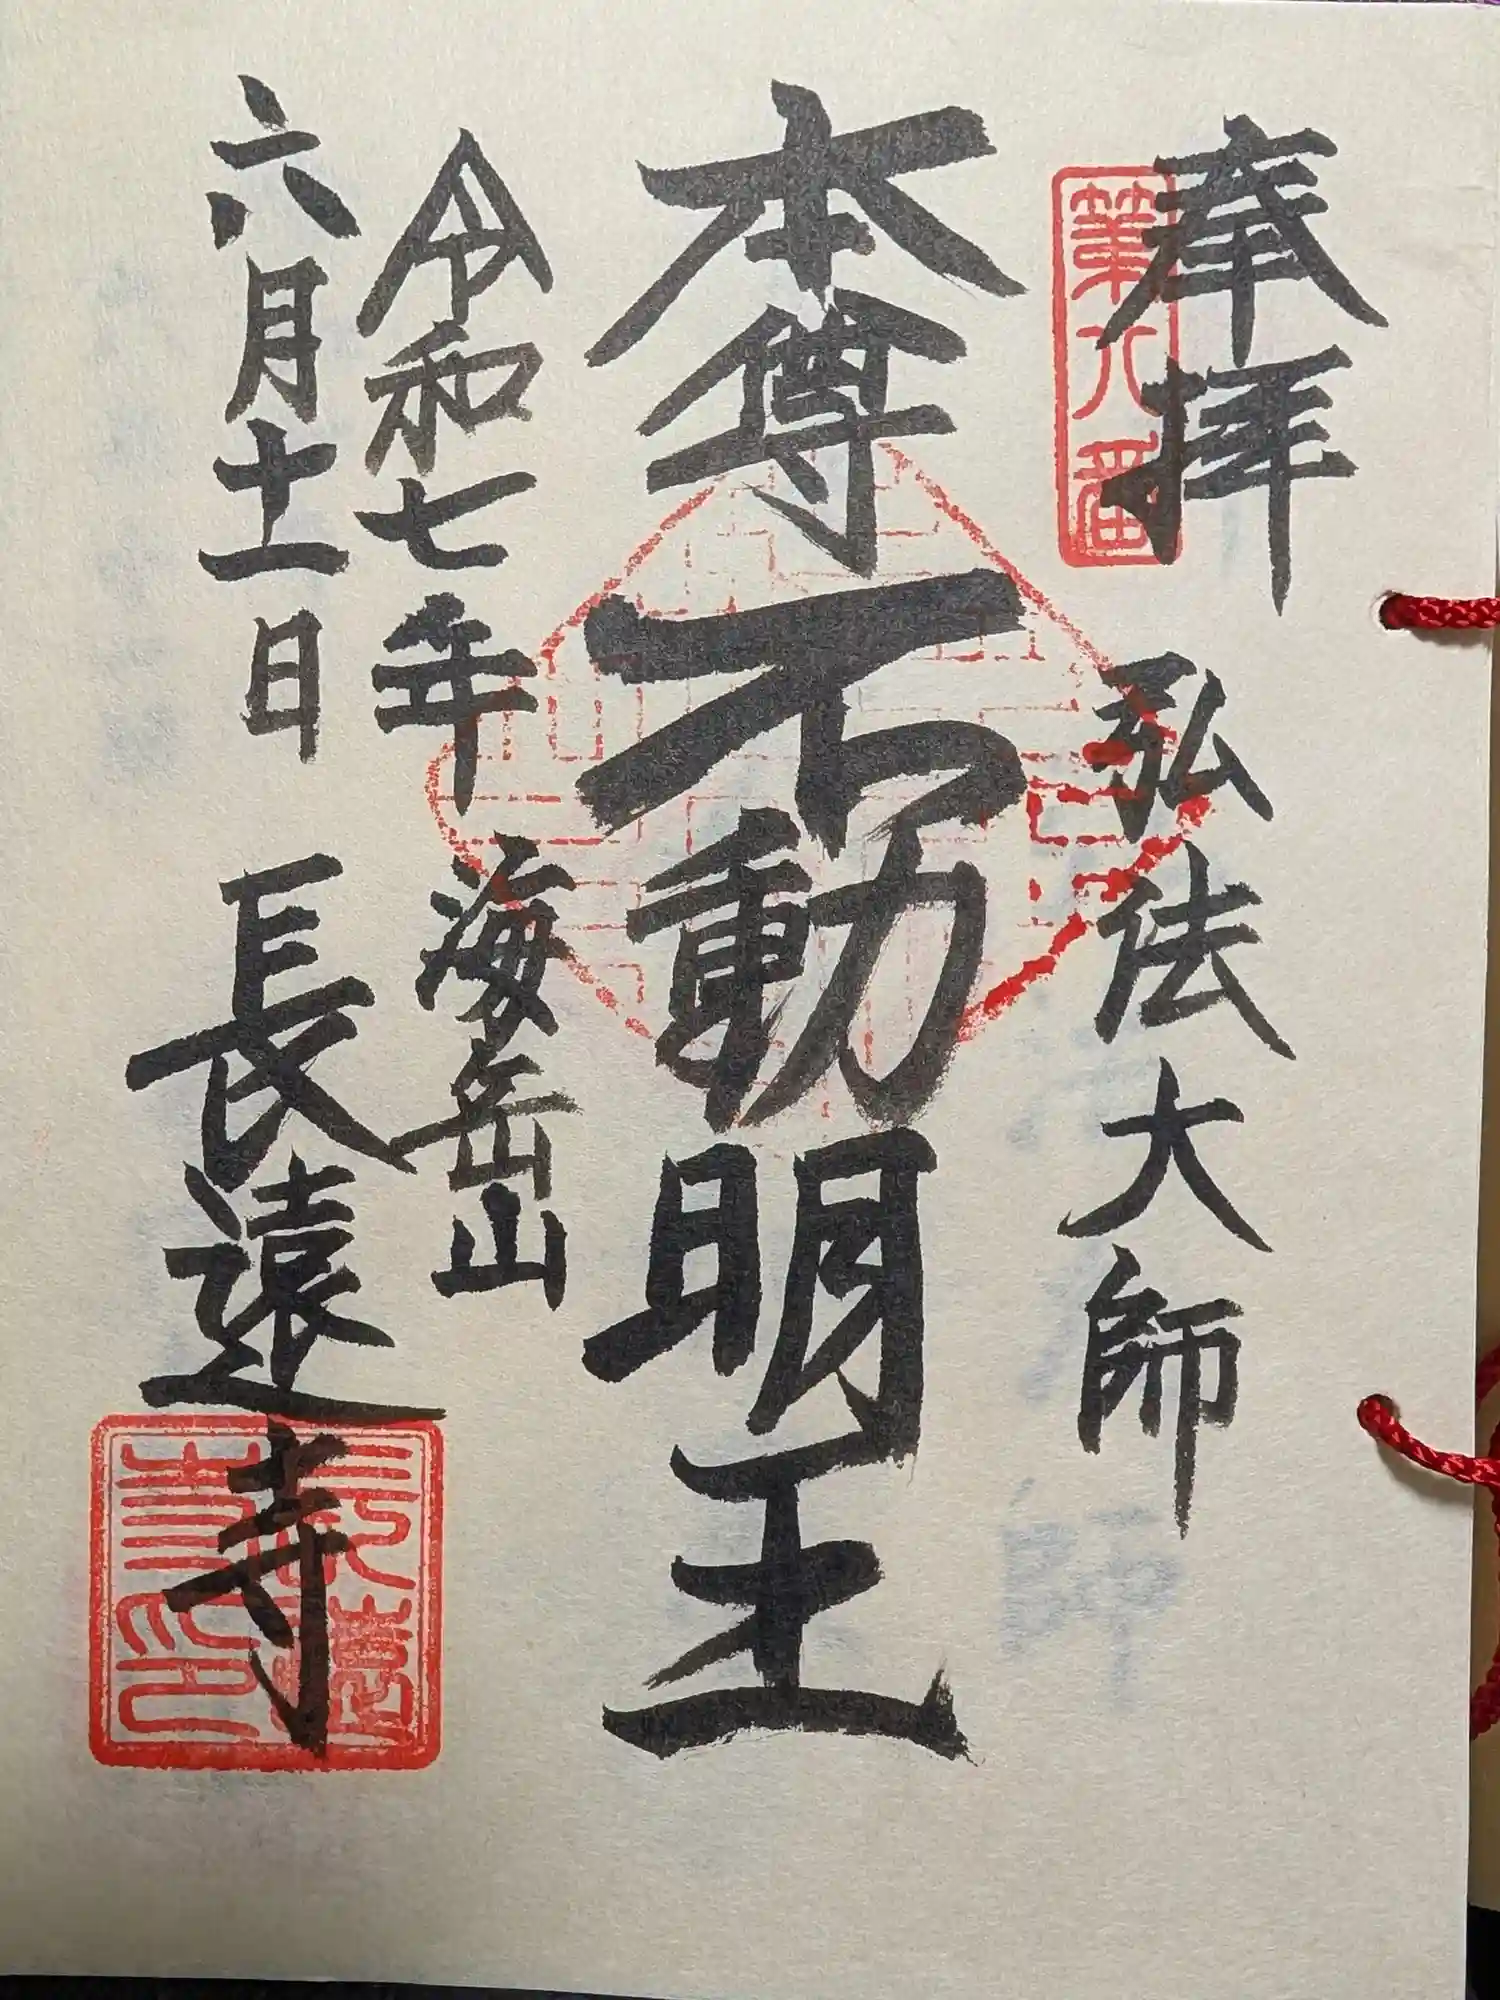 奉拝 弘法大師
本尊不動明王
令和七年 海岳山
六月十一日 長遠寺